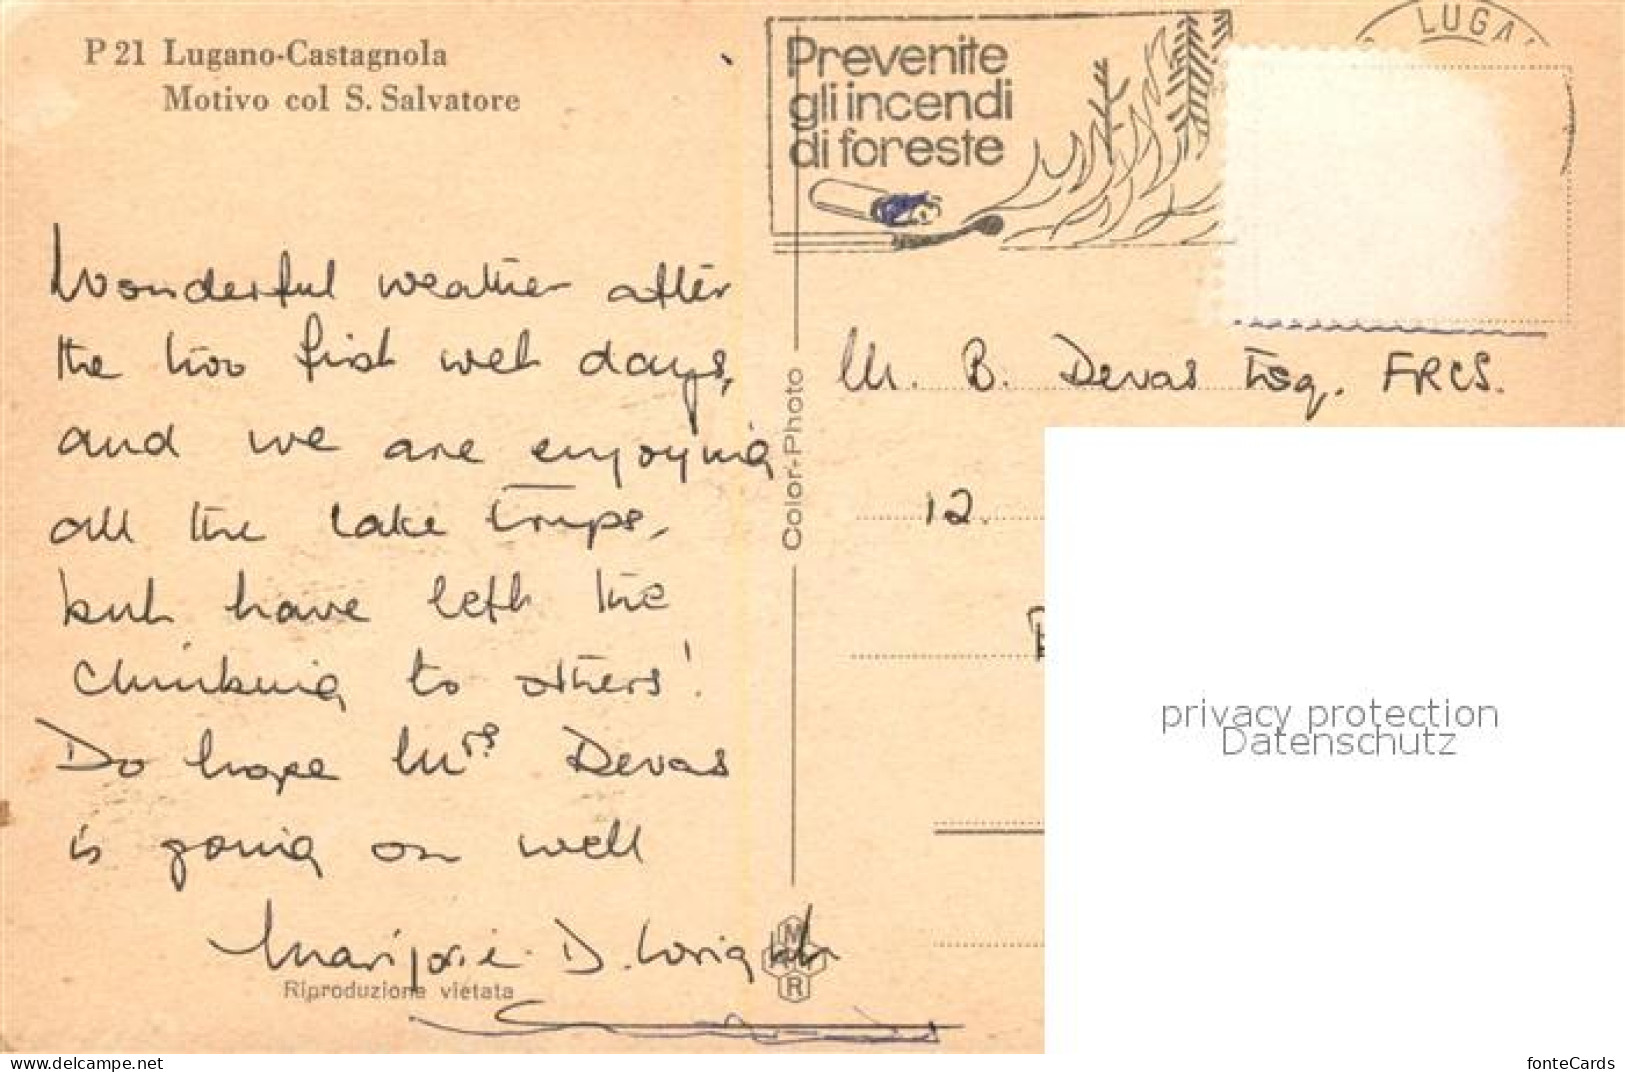 P 21 Lugano-Castagnola
Motivo col S. Salvatore
Prevenite
gli incendi
di foreste
LUGA
Wonderful weather after
the two first wet days,
and we are enjoying
all the lake trips,
but have left the
climbing to others!
Do hope Mrs Devas
is going on well
Marjorie D. Wright
Riproduzione vietata
Color-Photo
M
R
M. B. Devas Esq. FRCS.
12.
privacy protection
Datenschutz
fonteCards